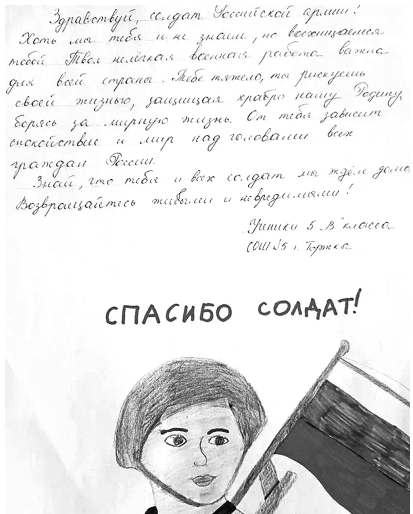 Здравствуй, солдат Российской армии!
Хоть мы тебя и не знаем, но восхищаемся
тобой Твоя нелёгкая военная работа важна
для всей страны. Тебе тяжело, ты рискуешь
своей жизнью, защищая храбро нашу Родину,
борясь за мирную жизнь. От тебя зависит
спокойствие и мир над головами всех
граждан России.
Знай, что тебя и всех солдат мы ждём дома.
Возвращайтесь живыми и невредимыми!
Ученики 5 „В" класса
СОШ №5 г.
СПАСИБО СОЛДАТ!